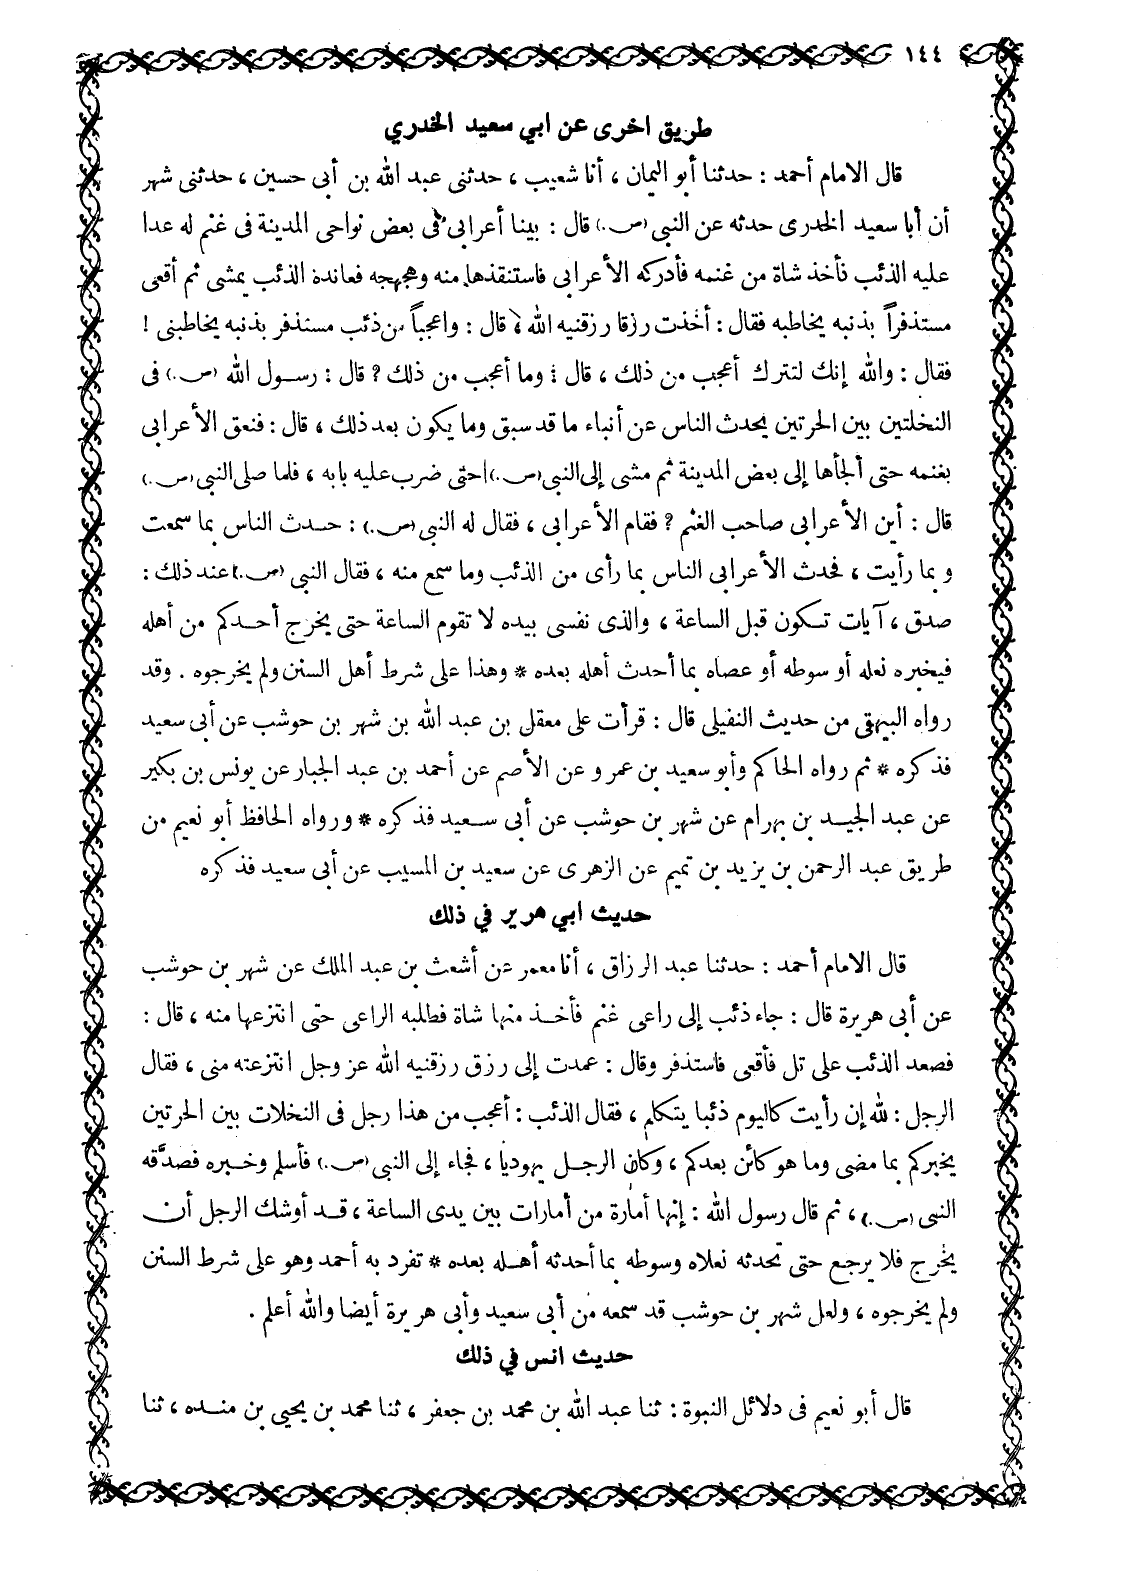 ١٤٤
طريق اخرى عن ابي سعيد الخدري
قال الامام أحمد : حدثنا أبو اليمان ، أنا شعيب ، حدثنى عبد الله بن أبى حسين ، حدثنى شهر
أن أبا سعيد الخدرى حدثه عن النبى (ص.) قال : بينا أعرابى فى بعض نواحى المدينة فى غنم له عدا
عليه الذئب فأخذ شاة من غنمه فأدركه الأعرابى فاستنقذها منه وهجهجه فعانده الذئب يمشى ثم أقعى
مستذفراً بذنبه يخاطبه فقال : أخذت رزقا رزقنيه الله ، قال : واعجباً من ذئب مستذفر بذنبه يخاطبنى !
فقال : والله إنك لتترك أعجب من ذلك ، قال : وما أعجب من ذلك ? قال : رسول الله (ص.) فى
النخلتين بين الحرتين يحدث الناس عن أنباء ما قد سبق وما يكون بعد ذلك ، قال : فنعق الأعرابى
بغنمه حتى ألجأها إلى بعض المدينة ثم مشى إلى النبى (ص.) حتى ضرب عليه بابه ، فلما صلى النبى (ص.)
قال : أين الأعرابى صاحب الغنم ? فقام الأعرابى ، فقال له النبى (ص.) : حدث الناس بما سمعت
و بما رأيت ، فحدث الأعرابى الناس بما رأى من الذئب وما سمع منه ، فقال النبى (ص.) عند ذلك :
صدق ، آيات تكون قبل الساعة ، والذى نفسى بيده لا تقوم الساعة حتى يخرج أحدكم من أهله
فيخبره نعله أو سوطه أو عصاه بما أحدث أهله بعده * وهذا على شرط أهل السنن ولم يخرجوه . وقد
رواه البيهقى من حديث النفيلى قال : قرأت على معقل بن عبد الله بن شهر بن حوشب عن أبى سعيد
فذكره * ثم رواه الحاكم وأبو سعيد بن عمرو عن الأصم عن أحمد بن عبد الجبار عن يونس بن بكير
عن عبد الحميد بن بهرام عن شهر بن حوشب عن أبى سعيد فذكره * ورواه الحافظ أبو نعيم من
طريق عبد الرحمن بن يزيد بن تميم عن الزهرى عن سعيد بن المسيب عن أبى سعيد فذكره
حديث ابي هرير في ذلك
قال الامام أحمد : حدثنا عبد الرزاق ، أنا معمر عن أشعث بن عبد الملك عن شهر بن حوشب
عن أبى هريرة قال : جاء ذئب إلى راعى غنم فأخذ منها شاة فطلبه الراعى حتى انتزعها منه ، قال :
فصعد الذئب على تل فأقعى فاستذفر وقال : عمدت إلى رزق رزقنيه الله عز وجل انتزعته منى ، فقال
الرجل : لله إن رأيت كاليوم ذئبا يتكلم ، فقال الذئب : أعجب من هذا رجل فى النخلات بين الحرتين
يخبركم بما مضى وما هو كائن بعدكم ، وكان الرجل يهوديا ، فجاء إلى النبى (ص.) فأسلم وخبره فصدَّقه
النبى (ص.) ، ثم قال رسول الله : إنها أمارة من أمارات بين يدى الساعة ، قد أوشك الرجل أن
يخرج فلا يرجع حتى تحدثه نعلاه وسوطه بما أحدثه أهله بعده * تفرد به أحمد وهو على شرط السنن
ولم يخرجوه ، ولعل شهر بن حوشب قد سمعه من أبى سعيد وأبى هريرة أيضا والله أعلم .
حديث انس في ذلك
قال أبو نعيم فى دلائل النبوة : ثنا عبد الله بن محمد بن جعفر ، ثنا محمد بن يحيى بن منده ، ثنا